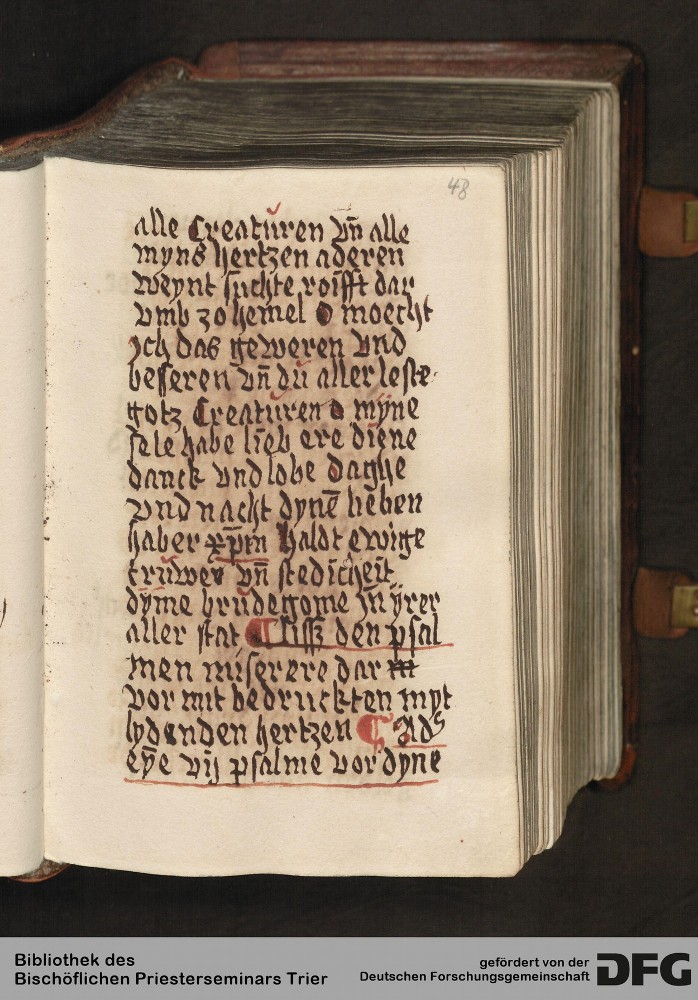 48
alle Creatůren vn̄ alle
myns hertzen aderen
weynt suchte roifft dar
vmb zo hemel O moecht
Jch das geweren vnd
besseren vn̄ dů aller leste
gotz Creatůren O mÿne
sele habe lieb ere diene
danck vnd lobe daghe
vnd nacht dynē lieben
haber xp̄m haldt ewige
trůwe vn̄ stedicheit
dÿme brůdegome jn ÿrer
aller stat ¶ Liß den psal
men miserere dar
vor mit bedruckten myt
lydenden hertzen ¶ Ad
eyē vij psalme vor dyne
Bibliothek des
Bischöflichen Priesterseminars Trier
gefördert von der
Deutschen Forschungsgemeinschaft
DFG